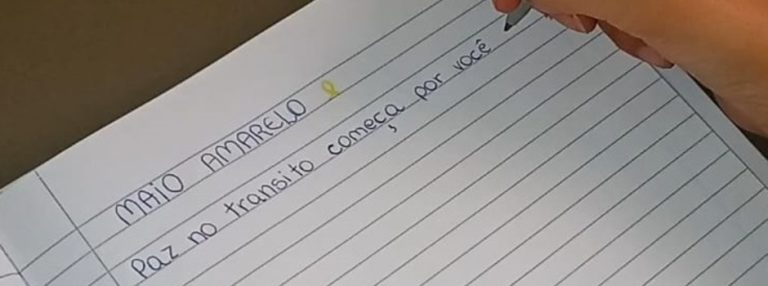 MAIO AMARELO
Paz no transito começa por você